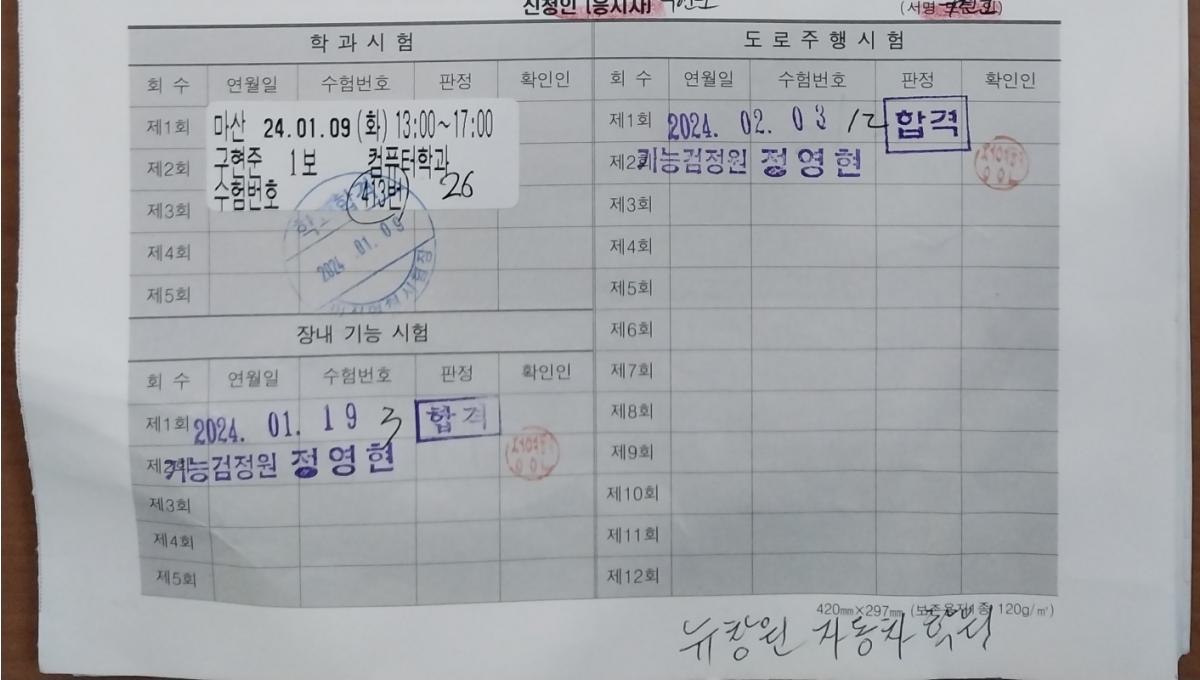 신청인 (응시자)
(서명
학 과 시 험
회 수 연월일 수험번호 판정 확인인
제1회 마산 24.01.09 (화) 13:00~17:00
제2회 구현주 1보 컴퓨터학과
제3회 수험번호 413번 26
합격
2024 .01.09
제4회
제5회
장내 기능 시험
회 수 연월일 수험번호 판정 확인인
제1회 2024. 01. 19 3 합격
제2회 기능검정원 정영현
제3회
제4회
제5회
도 로 주 행 시 험
회 수 연월일 수험번호 판정 확인인
제1회 2024. 02. 03 12 합격
제2회 기능검정원 정영현
제3회
제4회
제5회
제6회
제7회
제8회
제9회
제10회
제11회
제12회
420㎜×297㎜ (보존용지1종 120g/㎡)
뉴창원 자동차 학원